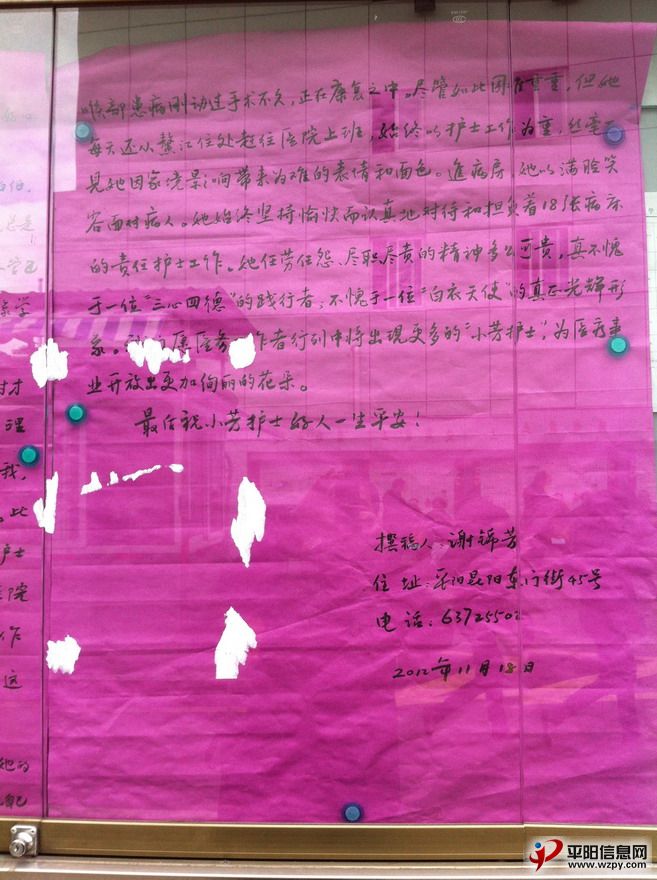 喉部患病刚动过手术不久，正在康复之中。尽管如此困难重重，但她
每天还从鳌江住处赶往医院上班，始终以护士工作为重，丝毫不
见她因家境影响带来为难的表情和面色。進病房，她以满脸笑
容面对病人。她始终坚持愉快而认真地对待和担负着18张病床
的责任护士工作。她任劳任怨、尽职尽责的精神多么可贵，真不愧
于一位“三心四德”的践行者，不愧于一位“白衣天使”的真正光辉形
象。医务作者行列中将出现更多的“小芳护士”，为医疗事
业开放出更加绚丽的花朵。
最后祝小芳护士好人一生平安！
撰稿人：谢锦芳
住址：平阳昆阳东门街45号
电话：63725502
2012年11月18日
总是
象学
对才
理
我，
此
护士
医院
作
这
她的
自己
平阳信息网
www.wzpy.com